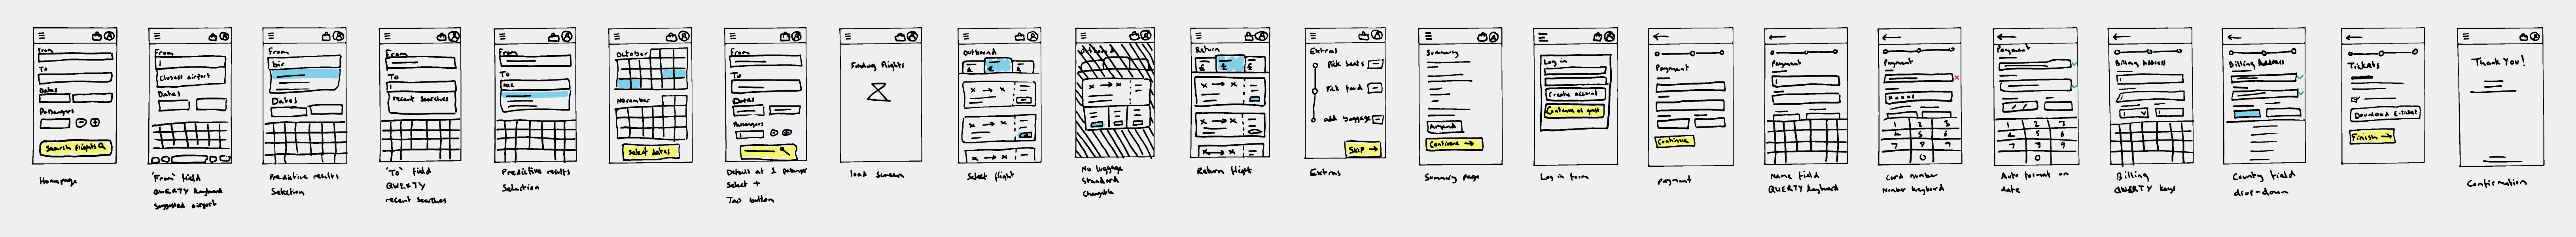 From
To
Dates
Passengers
Search flights
Homepage
From
Closest airport
Dates
'From' field
QWERTY keyboard
Suggested airport
From
bir
Dates
Predictive results
Selection
From
To
recent searches
'To' field
QWERTY
recent searches
From
To
Predictive results
Selection
October
November
Select dates
From
To
Dates
Passengers
1
Default at 1 passenger
Select +
Tap button
Finding flights
load screen
Outbound
£
£
£
Select flight
No luggage
Standard
Changable
Return
£
£
£
Return flight
Extras
Pick seats
Pick food
add baggage
Skip →
Extras
Summary
Amend
Continue →
Summary page
Log in
Create account
Continue as guest
Log in form
Payment
Continue
payment
Payment
Name field
QWERTY keyboard
Payment
xxxx
1 2 3
4 5 6
7 8 9
0
Card number
Number keyboard
Payment
/ /
1 2 3
4 5 6
7 8 9
0
Auto format on
date
Billing Address
Billing
QWERTY keys
Billing Address
Country field
drop-down
Tickets
Download E-ticket
Finish →
Thank You!
Confirmation